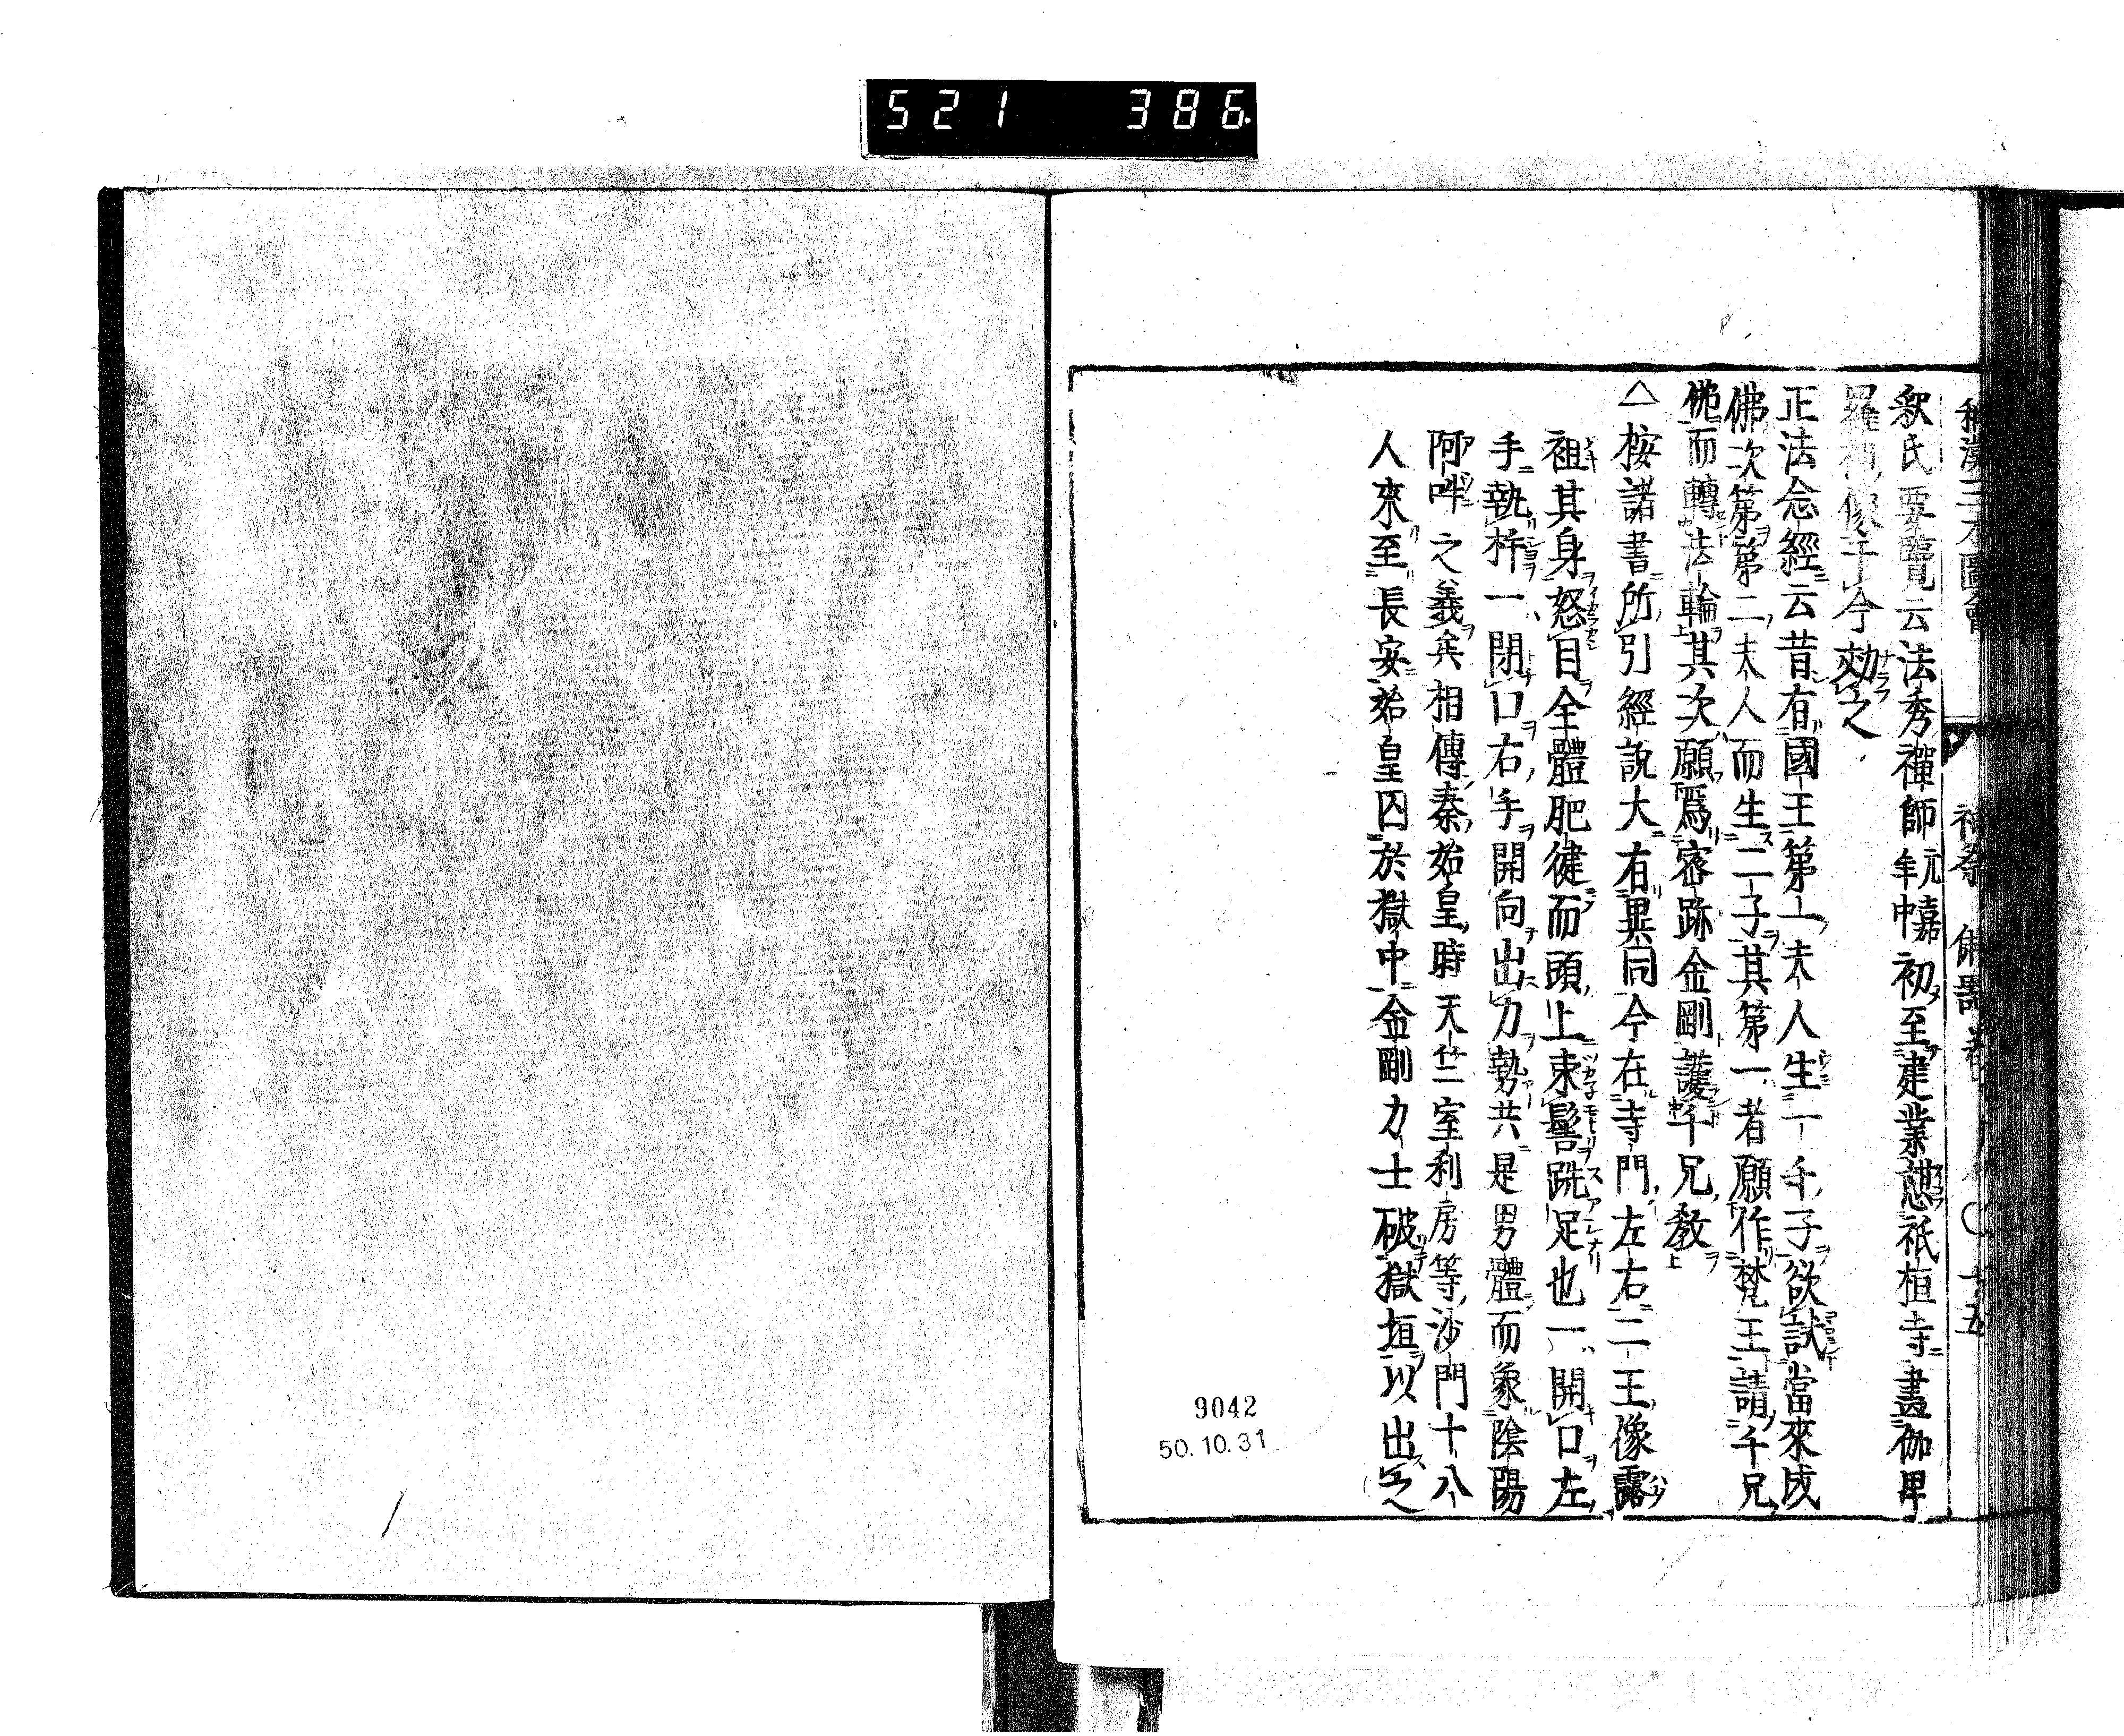 521 386
和漢三才圖會 神祭 佛噐 卷十九 〇十五
釈氏要覽云法秀禪師元嘉年中初至建業憩祇桓寺畫伽毘
羅神像于今効之
正法念經云昔有國王第一夫人生一千子欲試當來成
佛次第第二夫人而生二子其第一者願作梵王請千兄
佛而轉法輪其次願爲密跡金剛護千兄教
△按諸書所引經說大有異同今在寺門左右二王像露
袒其身怒目全體肥健而頭上束髻跣足也一開口左
手執杵一閉口右手開向出力勢共是男體而象陰陽
阿吽之義矣相傳秦始皇時天竺室利房等沙門十八
人來至長安始皇囚於獄中金剛力士破獄垣以出之
9042
50.10.31